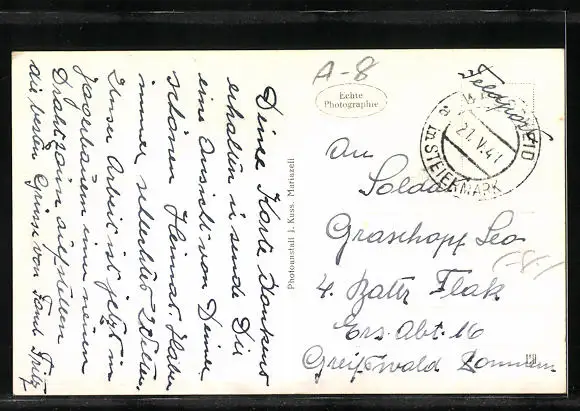 Deine Karte dankend
erhalten u sende Dir
eine Ansicht von Deiner
schönen Heimat. Habe
immer schlechtes Wetter.
Unser Arbeit ist jetzt in
einen neuen
Drahtzaun aufstellen
die besten Grüsse von Fritz
Photoanstalt J. Kuss, Mariazell
A-8
Echte
Photographie
Feldpost
21.V.41
in STEIERMARK
An
Soldat
Graschopf Leo
4. Battr Flak
Ers. Abt. 16
Greifswald Pommern